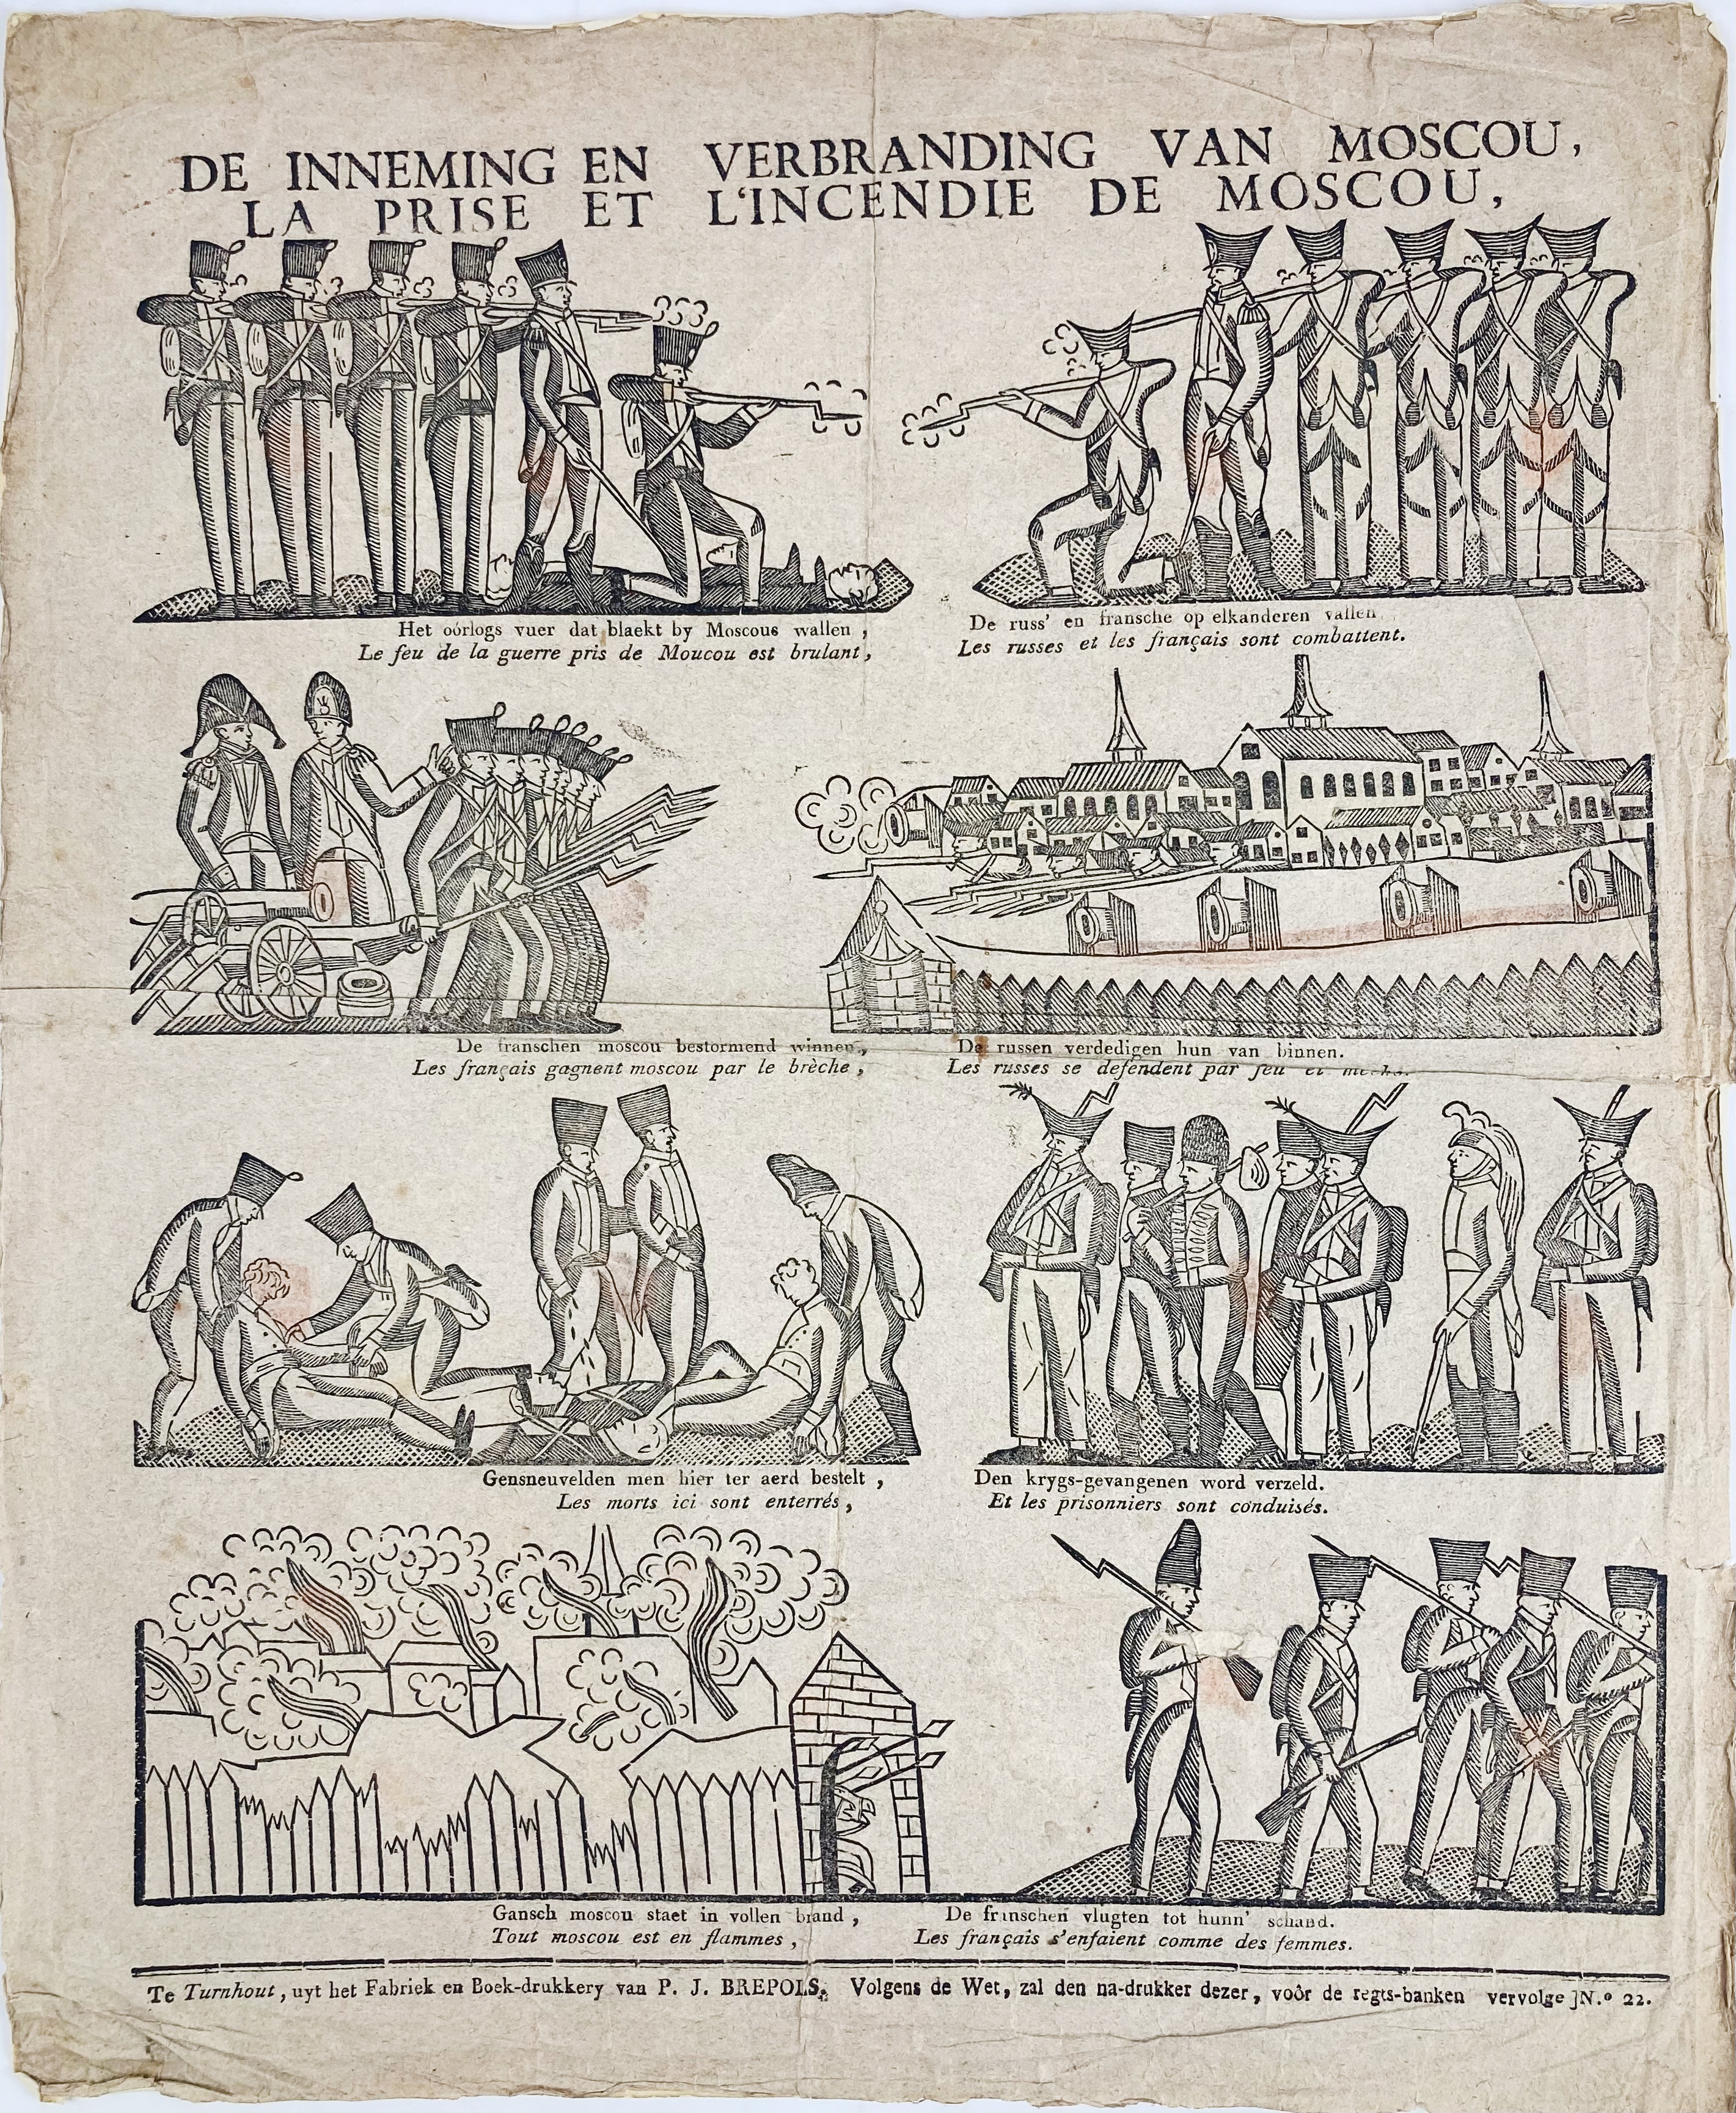 DE INNEMING EN VERBRANDING VAN MOSCOU,
LA PRISE ET L'INCENDIE DE MOSCOU,
Het oórlogs vuer dat blaekt by Moscous wallen,
Le feu de la guerre pris de Moucou est brulant,
De russ' en fransche op elkanderen vallen
Les russes et les français sont combattent.
De franschen moscou bestormend winnen,
Les français gagnent moscou par le brèche,
De russen verdedigen hun van binnen.
Les russes se defendent par feu et
Gensneuvelden men hier ter aerd bestelt,
Les morts ici sont enterrés,
Den krygs-gevangenen word verzeld.
Et les prisonniers sont conduisés.
Gansch moscou staet in vollen brand,
Tout moscou est en flammes,
De franschen vlugten tot hunn' schand.
Les français s'enfaient comme des femmes.
Te Turnhout, uyt het Fabriek en Boek-drukkery van P. J. BREPOLS. Volgens de Wet, zal den na-drukker dezer, voôr de regts-banken vervolge]N.º 22.